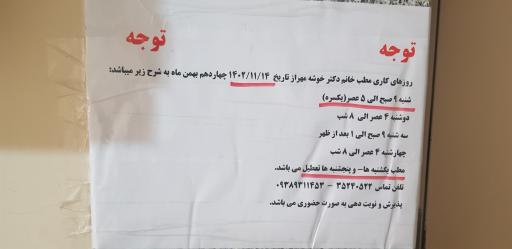 توجه توجه
روزهای کاری مطب خانم دکتر خوشه مهر از تاریخ ۱۴۰۲/۱۱/۱۴ چهاردهم بهمن ماه به شرح زیر میباشد:
شنبه ۹ صبح الی ۵ عصر(یکسره)
دوشنبه ۴ عصر الی ۸ شب
سه شنبه ۹ صبح الی ۱ بعد از ظهر
چهارشنبه ۴ عصر الی ۸ شب
مطب یکشنبه ها- و پنجشنبه ها تعطیل می باشد.
تلفن تماس ۳۵۲۴۰۵۲۲ - ۰۹۳۸۹۳۱۱۴۵۳
پذیرش و نوبت دهی به صورت حضوری می باشد.